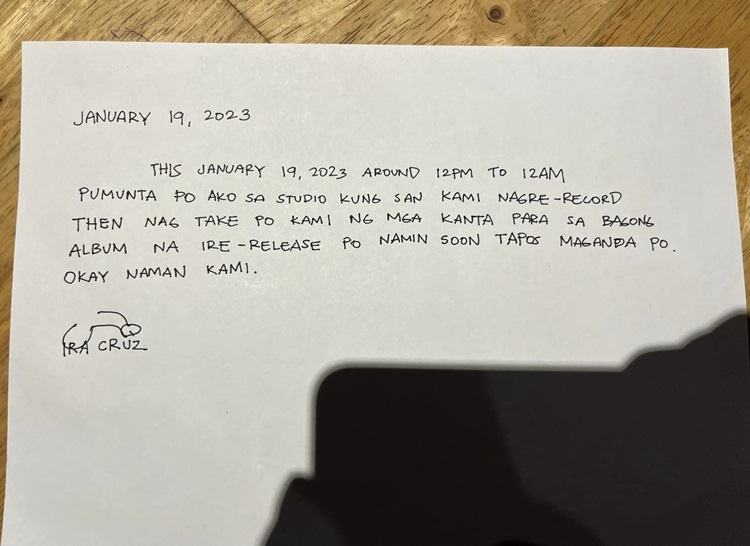 JANUARY 19, 2023
THIS JANUARY 19, 2023 AROUND 12PM TO 12AM
PUMUNTA PO AKO SA STUDIO KUNG SAN KAMI NAGRE-RECORD
THEN NAG TAKE PO KAMI NG MGA KANTA PARA SA BAGONG
ALBUM NA IRE-RELEASE PO NAMIN SOON TAPOS MAGANDA PO.
OKAY NAMAN KAMI.
IRA CRUZ